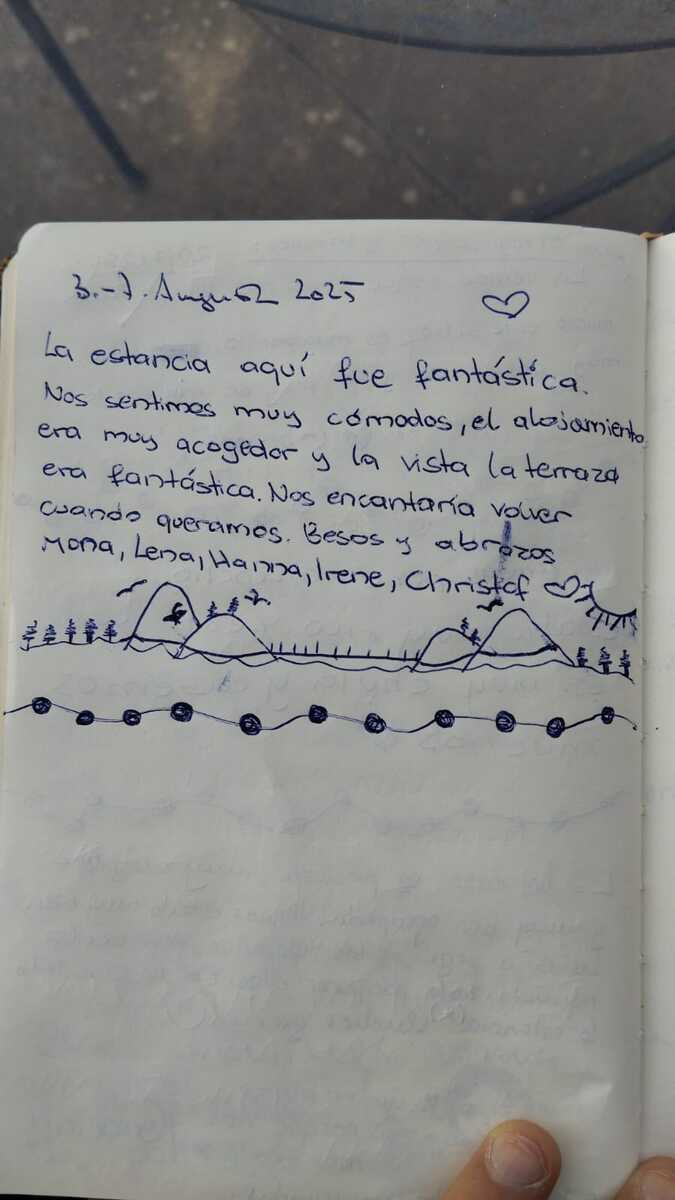 3.-7. August 2025
La estancia aquí fue fantástica.
Nos sentimos muy cómodos, el alojamiento
era muy acogedor y la vista la terraza
era fantástica. Nos encantaría volver
cuando queramos. Besos y abrazos
Mona, Lena, Hanna, Irene, Christof